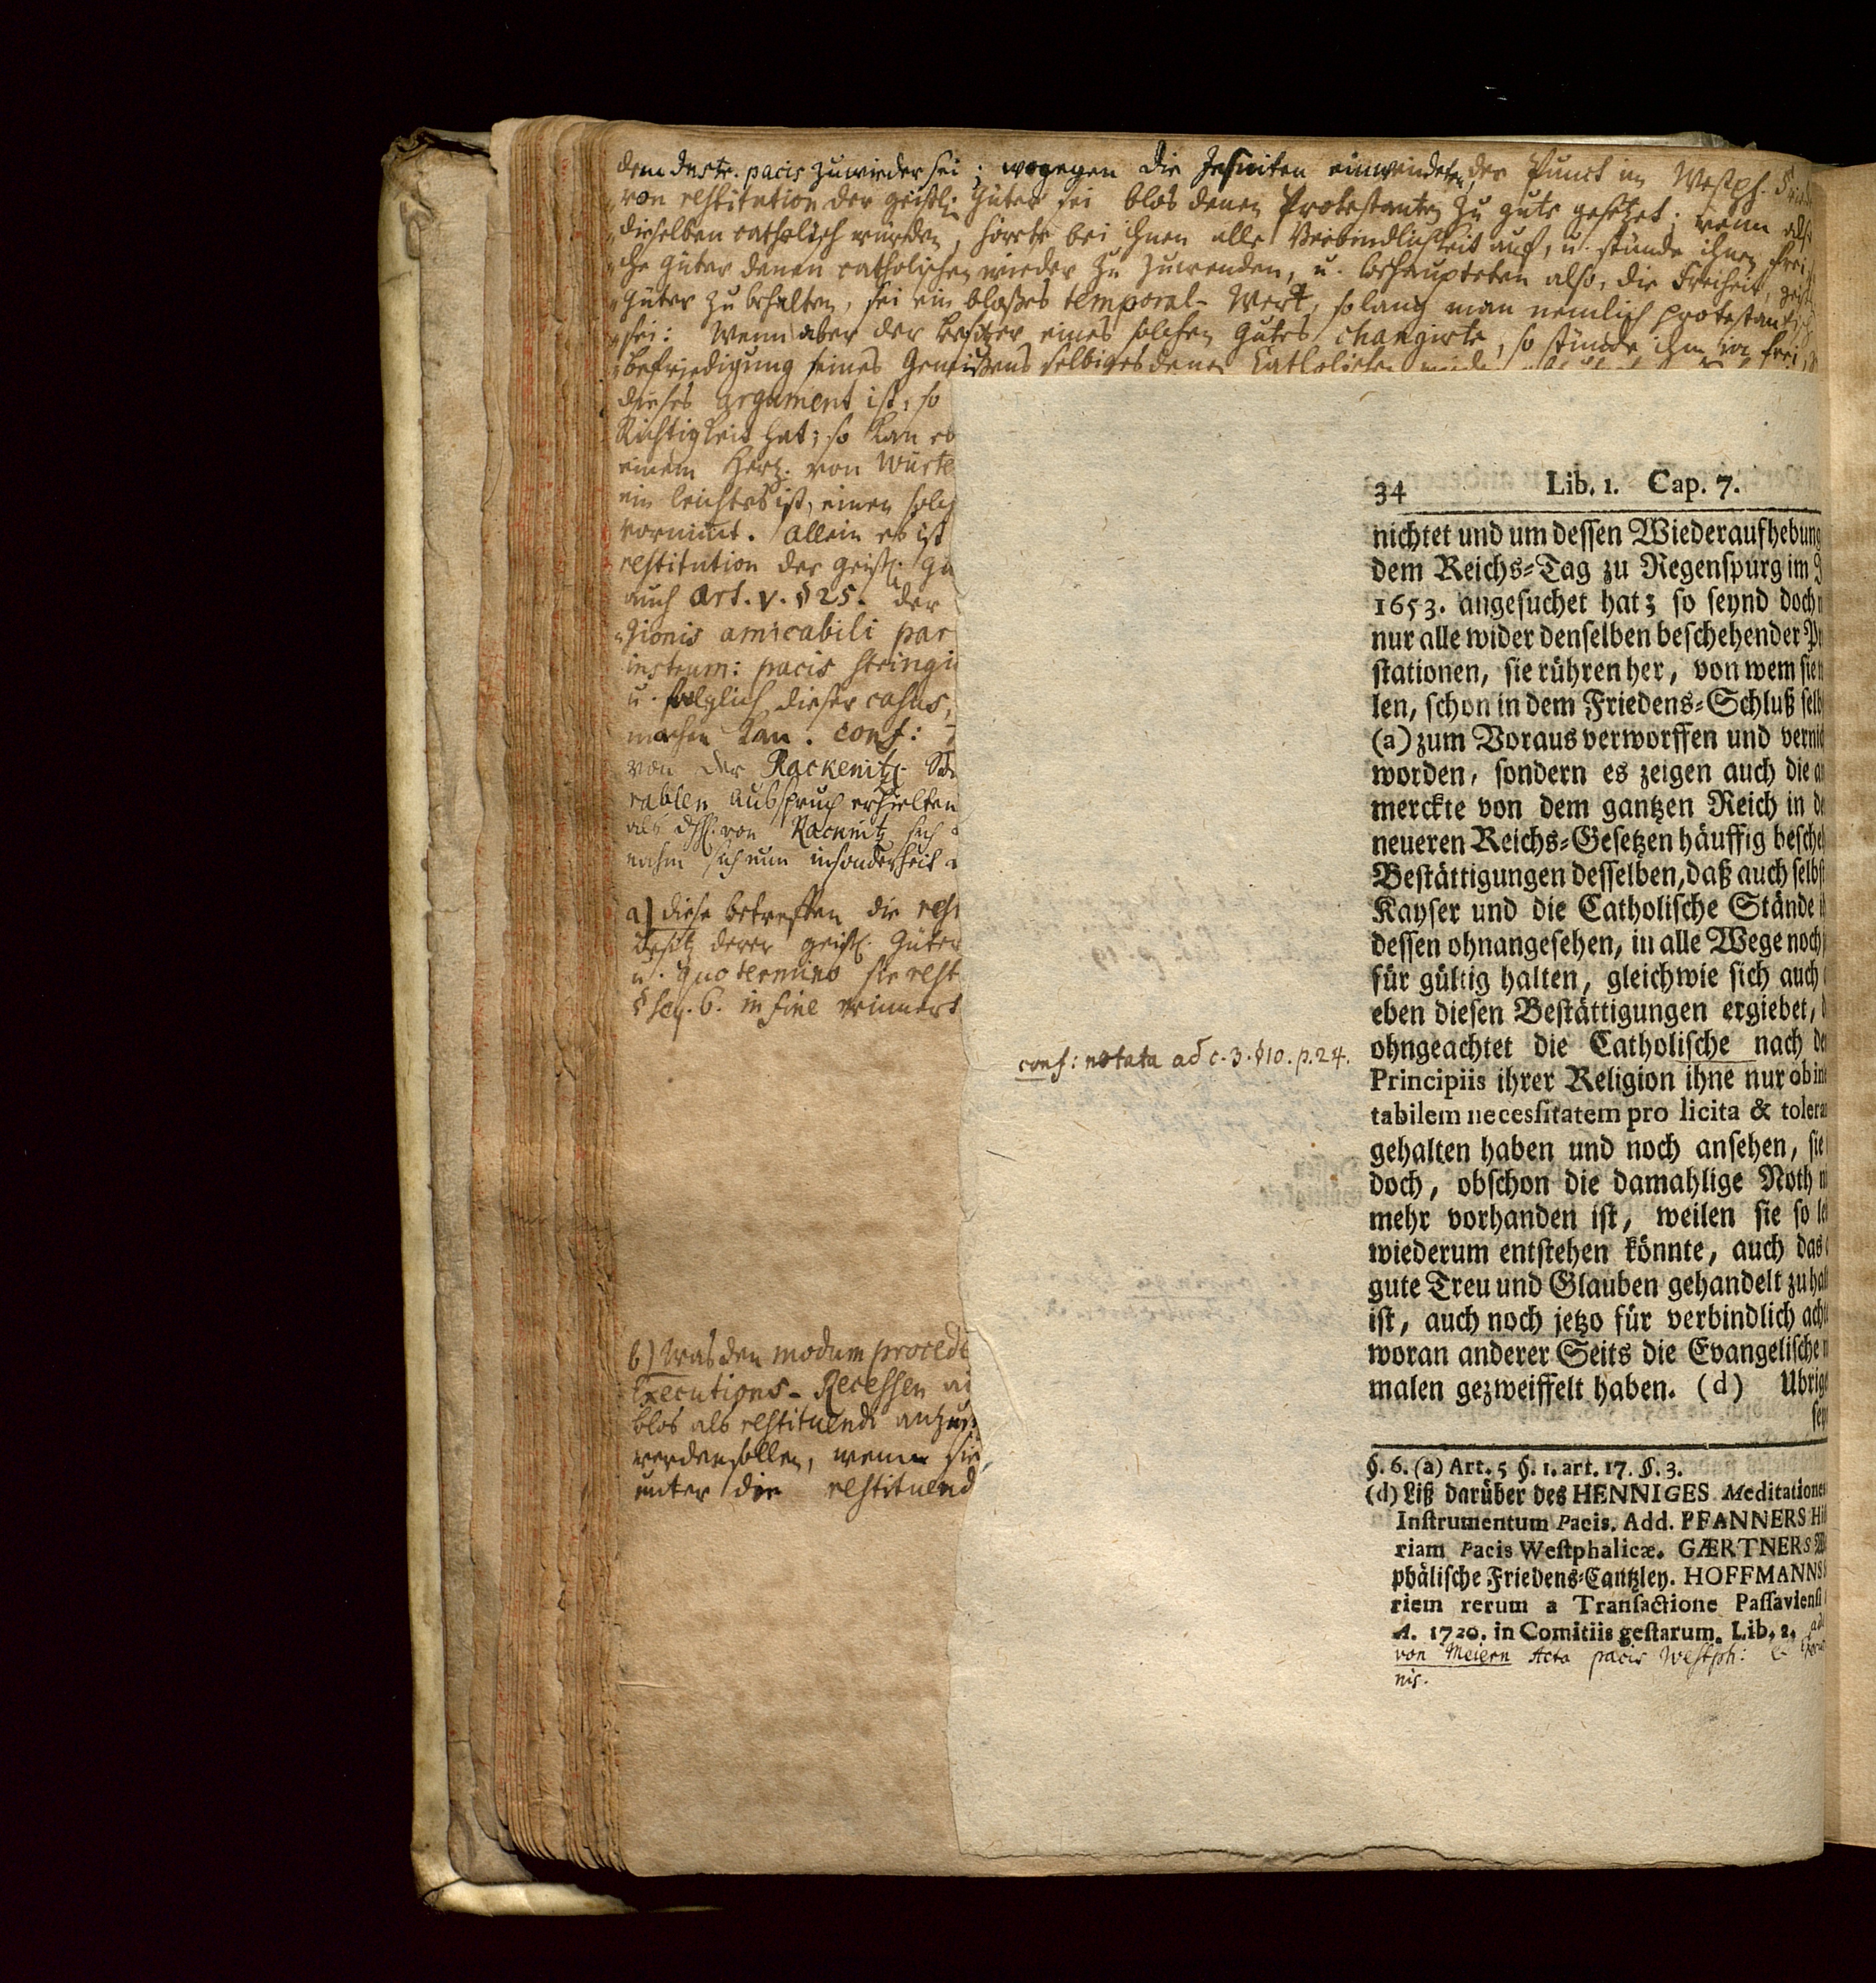 dem Instr. pacis zuwieder sei; wogegen die Jesuiten einwendeten, der Punct im Westph.
„von restitution der geistl. Güter sei blos denen Protestanten zu gute gesetzet; wenn also
„dieselben catholisch würden, hörete bei ihnen alle Verbindlichkeit auf, u. stünde ihnen frei,
„Güter denen catholischen wieder zu zuwenden, u. behaupteten also, die Freiheit,
„Güter zu behalten, sei ein bloßes temporal-Werk, solang man nemlich protestantisch
„sei: Wenn aber der Besitzer eines solchen Gutes changirte, so stünde ihm frei,
„befriedigung seines Gewißens selbiges denen Catholischen
dieses argument ist, so
Richtigkeit hat; so kan
einem Hertz. von Würte
ein leichtes ist, einen
vornimt. Allein es ist
restitution der geistl.
auch Art. V. §25. der
„gionis amicabili par
instrum: pacis stringi
u. folglich dieser casus,
machen kan. conf:
von der Rackenitz.
rablen Ausspruch erhielten
als von Racknitz sich
nahm sich nun insonderheit
a) diese betreffen die rest
Besitz derer geistl. Güter
u. quo termino sie rest
§ seq. 6. in fine erinnert
b) Was den modum procede
Executions-Recessen
blos als restituendi
werden sollen, wenn sie
unter die restituend
conf: notata ad c. 3. §10. p. 24.
34 Lib. 1. Cap. 7.
nichtet und um dessen Wiederaufhebung
dem Reichs-Tag zu Regenspurg im
1653. angesuchet hat; so seynd doch
nur alle wider denselben beschehender
stationen, sie rühren her, von wem sie
len, schon in dem Friedens-Schluß selb
(a) zum Voraus verworffen und vernich
worden, sondern es zeigen auch die
merckte von dem gantzen Reich in
neueren Reichs-Gesetzen häuffig besche
Bestättigungen desselben, daß auch selbst
Kayser und die Catholische Stände
dessen ohnangesehen, in alle Wege noch
für gültig halten, gleichwie sich auch
eben diesen Bestättigungen ergiebet,
ohngeachtet die Catholische nach
Principiis ihrer Religion ihne nur ob
tabilem necessitatem pro licita & tolera
gehalten haben und noch ansehen, sie
doch, obschon die damahlige Noth
mehr vorhanden ist, weilen sie so
wiederum entstehen könnte, auch das
gute Treu und Glauben gehandelt zu
ist, auch noch jetzo für verbindlich
woran anderer Seits die Evangelische
malen gezweiffelt haben. (d) Ubrig
§. 6. (a) Art. 5 §. 1. art. 17. §. 3.
(d) Liß darüber des HENNIGES Meditationes
Instrumentum Pacis. Add. PFANNERS
riam Pacis Westphalicæ. GÆRTNERS
phälische Friedens-Cantzley. HOFFMANNS
riem rerum a Transactione Passaviensi
A. 1720. in Comitiis gestarum. Lib. 2.
von Meiern Acta pacis Westph:
nis.